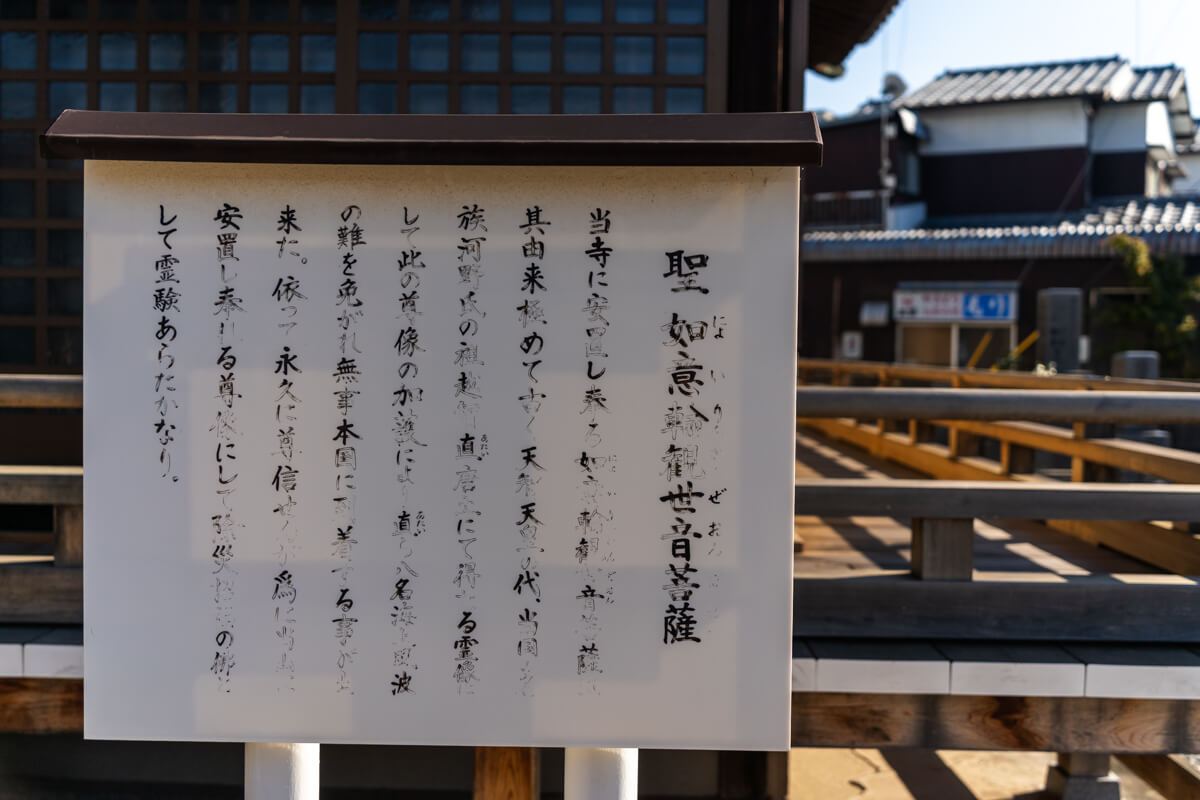 聖如意輪観世音菩薩
当寺に安置し奉る如意輪観世音菩薩
其由来極めて古く天智天皇の代、当国
族河野氏の祖越智直、唐土にて得たる霊像に
して此の尊像の加護により直ら八名海上風波
の難を免がれ無事本国に到着する事が出
来た。依って永久に尊信せんが為に当
安置し奉れる尊像にして除災招福の御
して霊験あらたかなり。